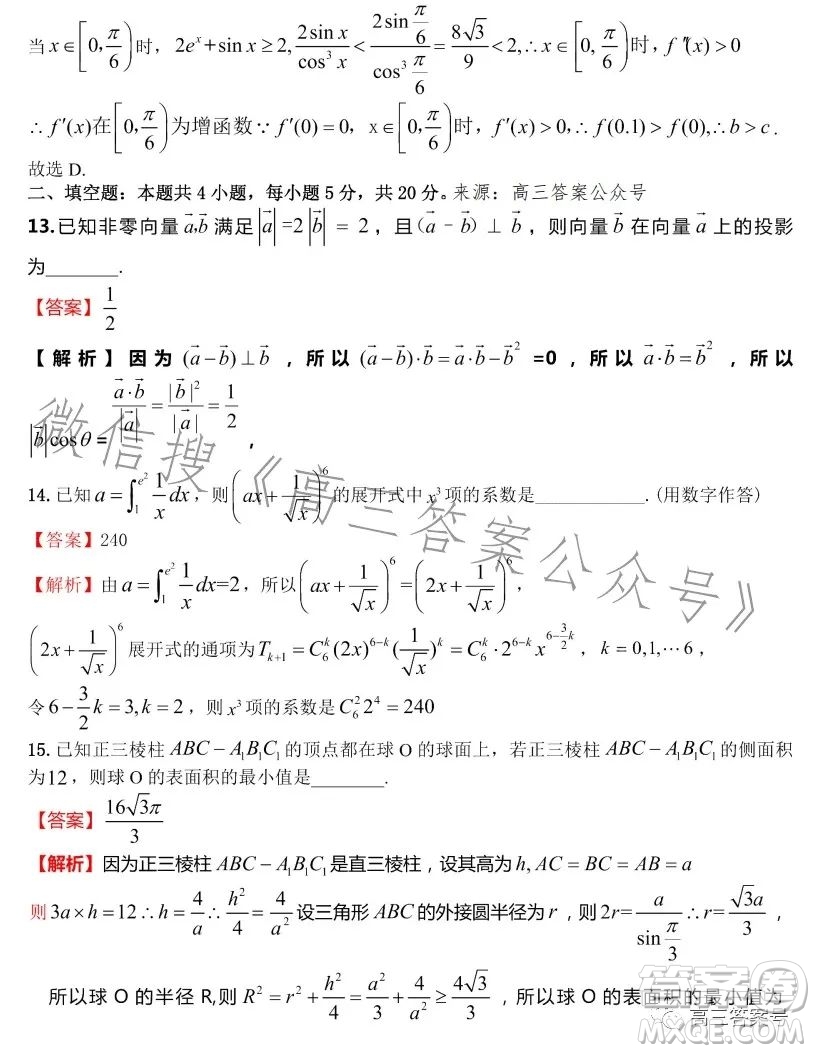 当 x∈[0,π/6) 时，2eˣ+sin x≥2, 2sin x/cos³x < 2sin(π/6)/cos³(π/6) = 8√3/9 <2,∴x∈[0,π/6) 时,f″(x)>0
∴f′(x)在[0,π/6)为增函数∵f′(0)=0，x∈[0,π/6)时,f′(x)>0,∴f(0.1)>f(0),∴b>c.
故选 D.
二、填空题：本题共 4 小题，每小题 5 分，共 20 分。来源：高三答案公众号
13.已知非零向量 a⃗,b⃗ 满足 |a⃗|=2|b⃗|=2，且(a⃗-b⃗)⊥b⃗，则向量 b⃗ 在向量 a⃗ 上的投影
为_______.
【答案】1/2
【解析】因为 (a⃗-b⃗)⊥b⃗，所以 (a⃗-b⃗)·b⃗=a⃗·b⃗-b⃗² =0，所以 a⃗·b⃗=b⃗²，所以
|b⃗|cosθ = a⃗·b⃗/|a⃗| = |b⃗|²/|a⃗| = 1/2，
14. 已知 a=∫₁^(e²) (1/x)dx，则(ax+1/√x)⁶的展开式中 x³项的系数是____________.(用数字作答)
【答案】240
【解析】由 a=∫₁^(e²) (1/x)dx=2，所以(ax+1/√x)⁶=(2x+1/√x)⁶，
(2x+1/√x)⁶展开式的通项为 Tₖ₊₁=C₆ᵏ(2x)⁶⁻ᵏ(1/√x)ᵏ=C₆ᵏ·2⁶⁻ᵏx^(6-(3/2)k)，k=0,1,⋯6，
令6-(3/2)k=3,k=2，则 x³ 项的系数是C₆²2⁴=240
15. 已知正三棱柱 ABC-A₁B₁C₁ 的顶点都在球 O 的球面上，若正三棱柱 ABC-A₁B₁C₁ 的侧面积
为12，则球 O 的表面积的最小值是________.
【答案】16√3π/3
【解析】因为正三棱柱 ABC-A₁B₁C₁是直三棱柱，设其高为 h, AC=BC=AB=a
则3a×h=12∴h=4/a∴h²/4=4/a² 设三角形 ABC 的外接圆半径为 r，则 2r=a/sin(π/3)∴r=√3a/3，
所以球 O 的半径 R,则 R²=r²+h²/4=a²/3+4/a²≥4√3/3，所以球 O 的表面积的最小值为
微信搜《高三答案公众号》
答案圈
高三答案号
MXQE.COM